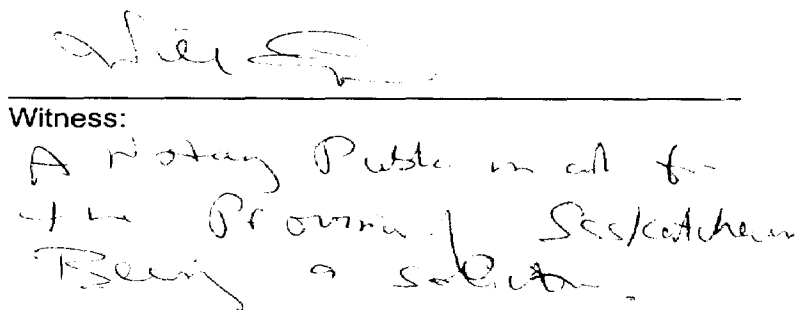 Witness:
A Notary Public in and for
the Province of Saskatchewan
Being a solicitor.